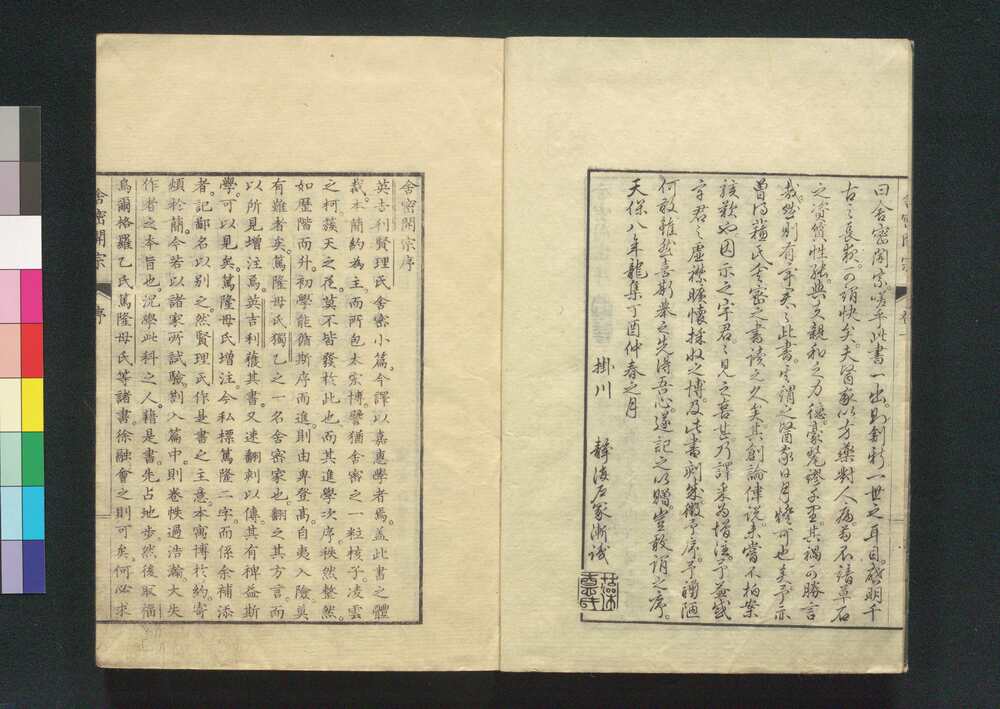 曰舍密開宗嗟乎此書一出則創新一世之耳目。啓明千
古之長夜。可謂快矣。夫醫家以方藥對人病。苟不諳草石
之資質性能與夫親和之力德。豪釐謬差。其禍可勝言
哉。然則有之此書。實謂之醫家日月燈可也矣。予亦
曽得氏舍密之書讀之久矣。其創論偉説。未嘗不拍案
該歎也。因示之宇君之見之喜甚。乃譯采為增注。予益感
宇君之虛襟曠懷採收之博。及此書刻成徵予序。予譾陋
何敢。雖然喜斯舉之先得吾心。遂記之以贈。豈敢謂之序。
天保八年龍集丁酉仲春之月
掛川　靜海戶塚漸識
舍密開宗序
英吉利賢理氏舍密小篇。今譯以嘉惠學者焉。蓋此書之體
裁。本簡約為主。而所包太宏博。譬猶舍密之一粒核子。凌雲
之柯。蔟天之莫不皆發於此也。而其進學次序。秩然整然。
如歷階而升。初學能循斯序而進。則由卑登高。自夷入險。奚
有難者矣。蔫隆母氏獨乙之一名舍密家也。翻之其方言。而
以所見增注焉。英吉利獲其書。又速翻刺以傳。其有裨益斯
學。可以見矣。蔫隆母氏增注。今私標蔫隆二字。而係余補添
者。記鄙名以別之。然賢理氏作是書之主意。本寓博於約。寄
煩於簡。今若以諸家所試驗。剳入篇中。則卷帙過浩瀚。大失
作者之本旨也。況學此科之人。藉是書。先占地步。然後取福
烏爾格羅乙氏蔫隆母氏等諸書。徐融會之則可矣。何必求
舍密開宗　序